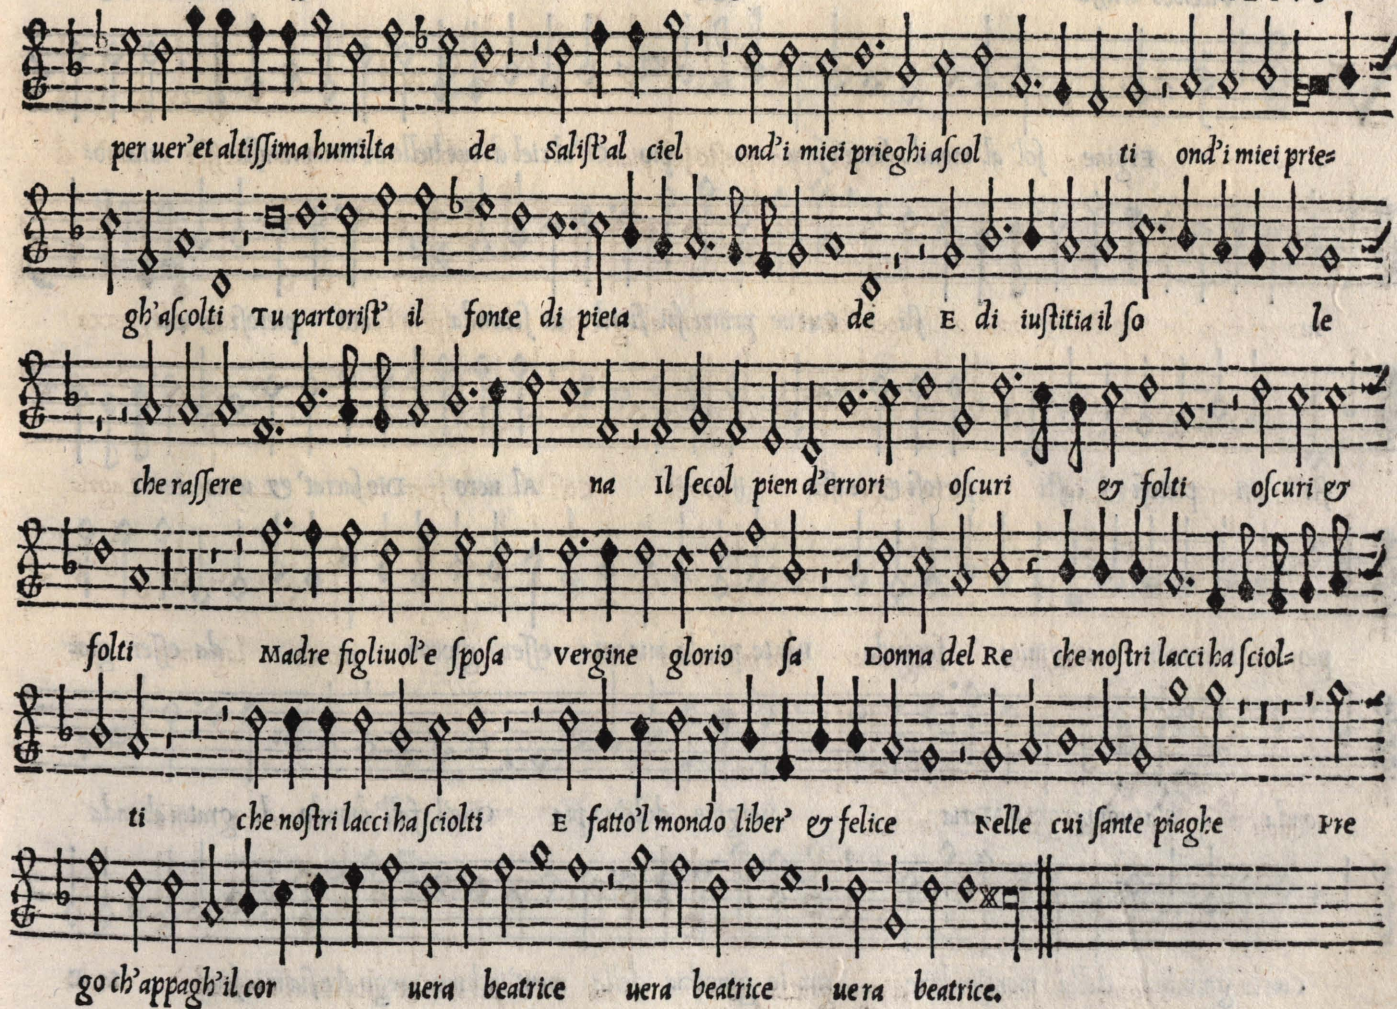 per uer' et altiſſima humilta de Saliſt' al ciel ond' i miei prieghi aſcol ti ond' i miei prie=
gh' aſcolti Tu partoriſt' il fonte di pieta de E di iuſtitia il ſo le
che raſſere na Il ſecol pien d'errori oſcuri & folti oſcuri &
folti Madre figliuol' e ſpoſa Vergine glorio ſa Donna del Re che noſtri lacci ha ſciol=
ti che noſtri lacci ha ſciolti E fatto'l mondo liber' & felice Nelle cui ſante piaghe Pre
go ch' appagh' il cor uera beatrice uera beatrice uera beatrice.